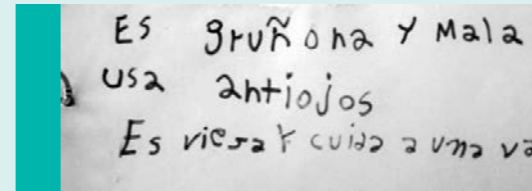 ES gruñona Y Mala
usa antiojos
Es viesa Y cuida a una va